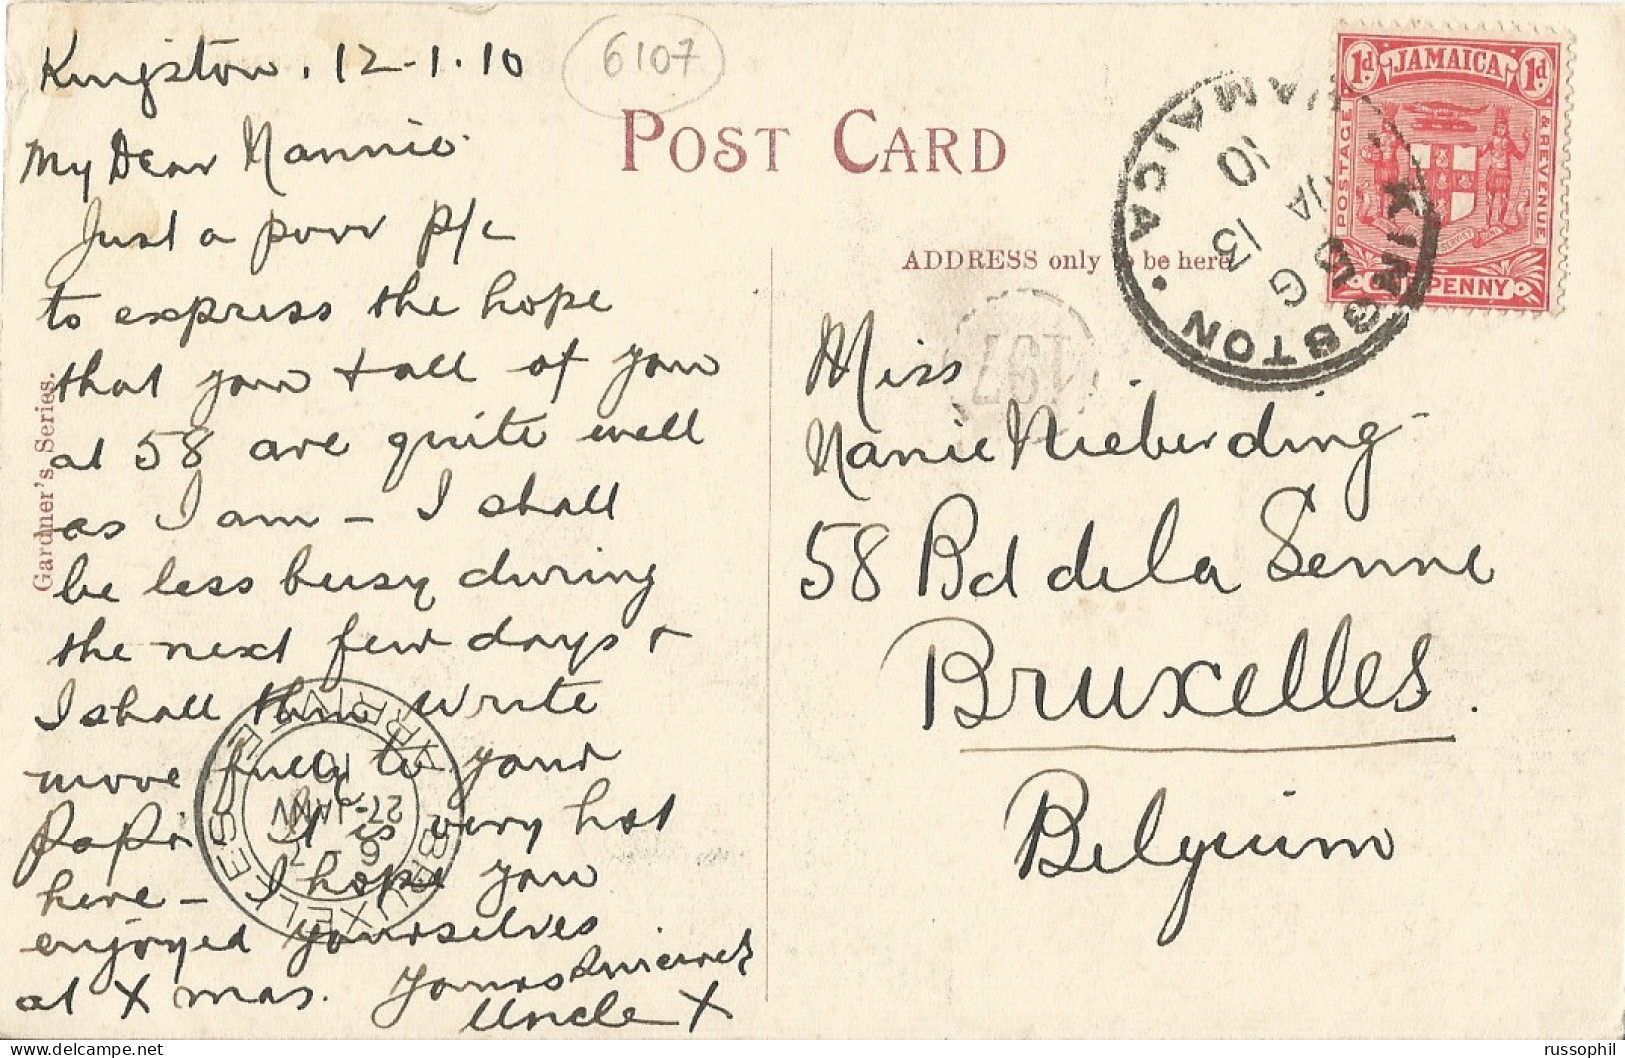 Kingston. 12-1.10
6107
My Dear Nannie.
Just a poor p/c
to express the hope
that you + all of you
at 58 are quite well
as I am – I shall
be less busy during
the next few days +
I shall then write
more fully to your
Papa. It is very hot
here – I hope you
enjoyed yourselves
at X mas. Yours
Uncle X
Gardner's Series.
POST CARD
ADDRESS only to be here
Miss
Nanie Nieberding
58 Bd de la Senne
Bruxelles.
Belgium
1d JAMAICA 1d
POSTAGE & REVENUE
ONE PENNY
KINGSTON • JAMAICA
G
13
JA
10
197
BRUXELLES
ARRIVEE
6-7
27-JANV
10
russophil
delcampe.net